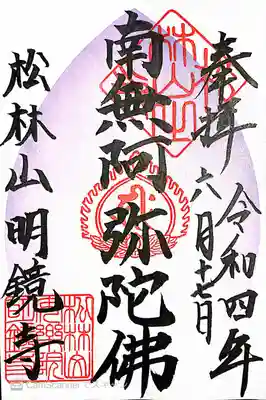 奉拝
令和四年
六月十七日
南無阿弥陀佛
松林山明鏡寺
CamScanner でスキャン